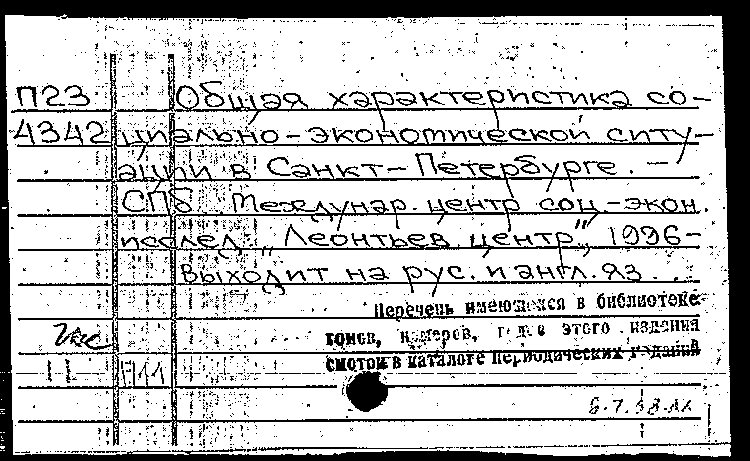 П23 Общая характеристика со-
4342 циально-экономической ситу-
ации в Санкт-Петербурге. -
СПб Междунар. центр соц.-экон.
исслед. „Леонтьев. центр", 1996-
Выходит на рус. и англ. яз...
Перечень имеющихся в библиотеке
томов, номеров, годов этого издания
смотри в каталоге периодических изданий
11